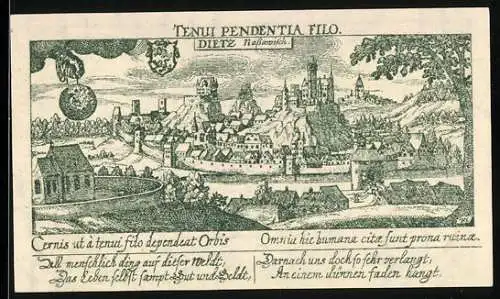 TENUI PENDENTIA FILO.
DIETZ Naßawisch.
Cernis ut à tenui filo dependeat Orbis
Omniũ hic humanæ citæ sunt prona ruinæ.
All menschlich ding auf dieser Weldt,
Das Leben selbst sampt Gut und Geldt,
Darnach uns doch so sehr verlangt;
An einem dünnen faden hangt.